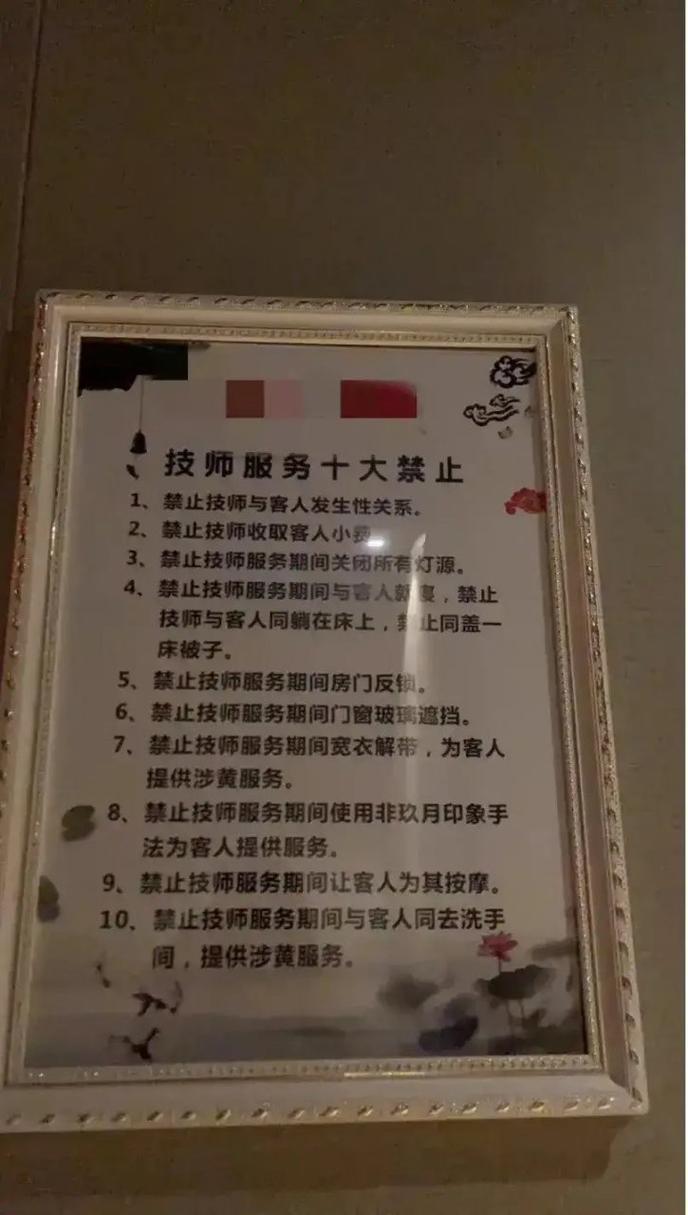 技师服务十大禁止
1、禁止技师与客人发生性关系。
2、禁止技师收取客人小费
3、禁止技师服务期间关闭所有灯源。
4、禁止技师服务期间与客人寝，禁止
技师与客人同躺在床上，禁止同盖一
床被子。
5、禁止技师服务期间房门反锁。
6、禁止技师服务期间门窗玻璃遮挡。
7、禁止技师服务期间宽衣解带，为客人
提供涉黄服务。
8、禁止技师服务期间使用非玖月印象手
法为客人提供服务。
9、禁止技师服务期间让客人为其按摩。
10、禁止技师服务期间与客人同去洗手
间，提供涉黄服务。